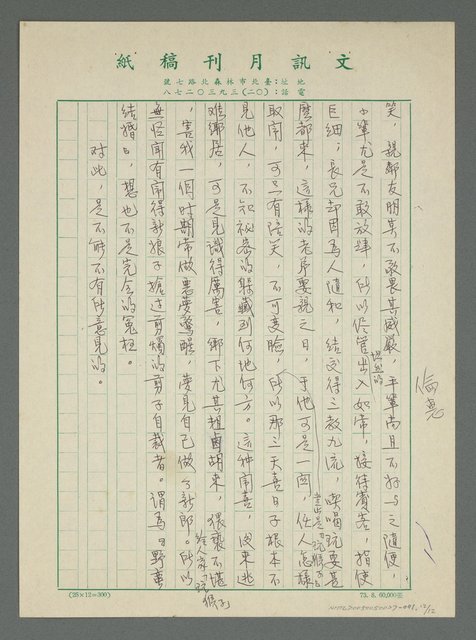 文訊月刊稿紙
地址:臺北市林森北路七號
電話:(〇二)三九三〇二八七
笑,親鄰友朋莫不敬畏其威嚴,平輩尚且不好与之隨便,
小輩尤是不敢放肆,所以儘管出入如常,接待賓客,指使
坦然的
巨細;長兄却因為人隨和,結交得三教九流,吃喝玩耍甚
麼都來,這樣的老弟要說之日,于他可是一関,任人怎樣
取鬧,可只有陪笑,不可變臉,所以那三天喜日子根本不
見他人,不知祕密的躲藏到何地何方。這种鬧喜,由來逃
难鄉居,可是見識得厲害,鄉下尤其粗鹵胡來,猥褻不堪
,害我一個时期常做惡夢驚醒,夢見自己做了新郎。所以
給人家「玩猴子」
每怪聞有鬧得新娘子搶过剪燭的剪子自裁者。謂為「野蛮
結婚」,想也不是完全的冤枉。
对此,是不能不有所意見的。
(25×12=300)
73. 8. 60,000張
12/12